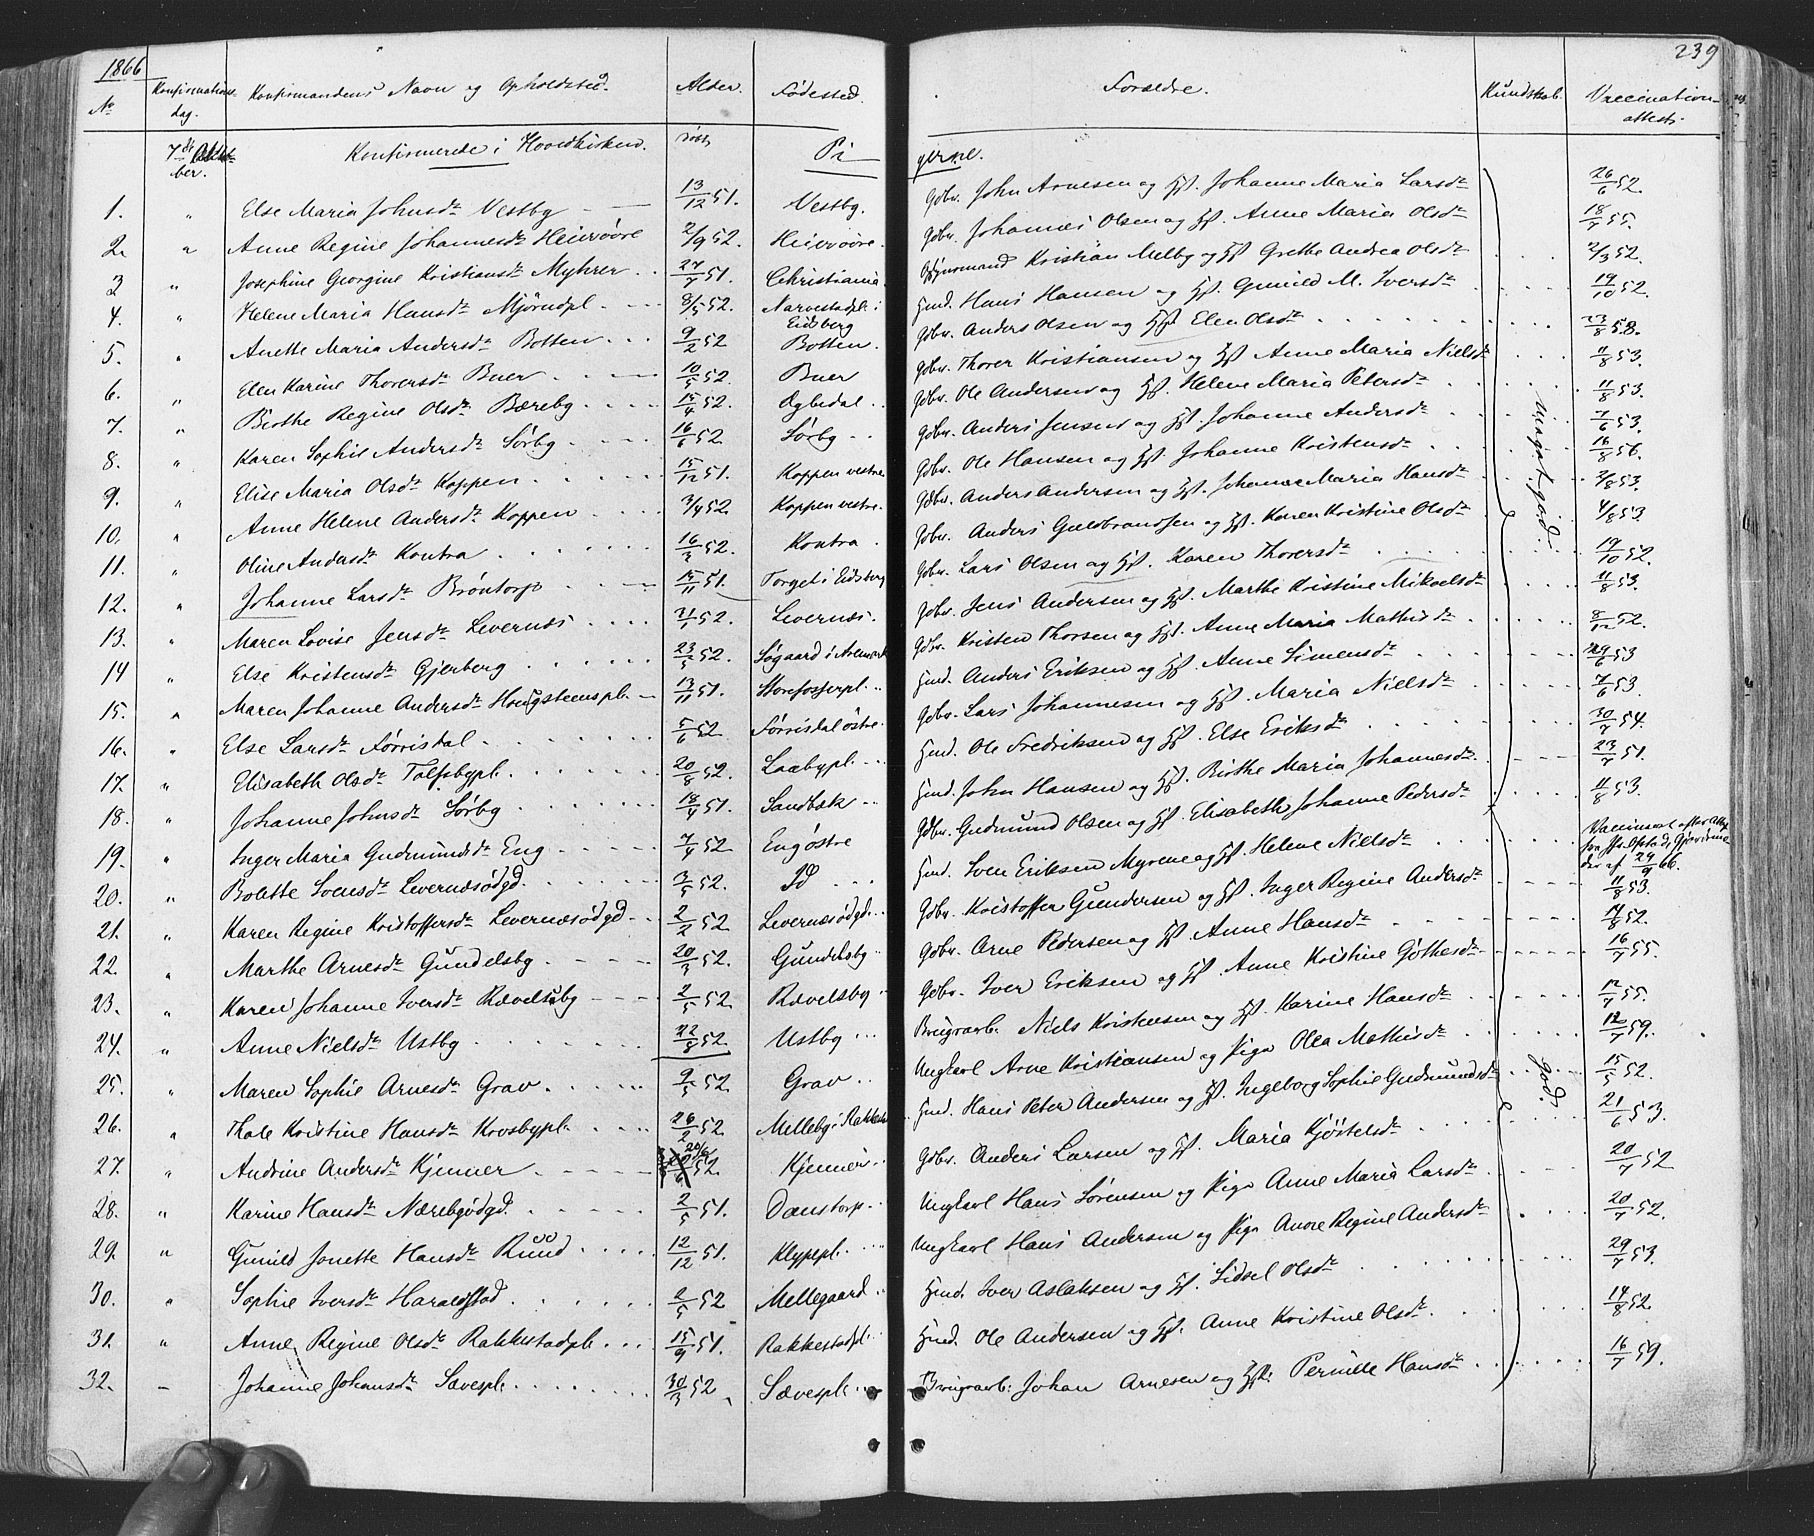 1866 239
No Konfirmations- dag. Konfirmandens Navn og Opholdsted. Alder. Fødested. Forældre. Kundskab. Vaccination- attest.
7de Oktober. Konfirmerede i Hovedkirken født Pi gerne.
1. " Else Maria Johnsdr Vestby 13/12 51. Vestby. Gdbr. John Arnesen og Hst. Johanne Maria Larsdr 26/6 52.
2. " Anne Regine Johannesdr 2/9 52. Gdbr. Johannes Olsen og Hst. Anne Maria Olsdr 18/7 55.
3 " Josephine Georgine Kristiansdr Myhrer 27/7 51. Christiania. Kristian Melby og Hst Grethe Andrea Olsdr 2/3 52.
4. " Helene Maria Hansdr Mjørudpl. 8/5 52. Narvestadpl. i Eidsberg Hmd. Hans Hansen og Hst. Gunild M. Iversdr 19/10 52.
5. " Anette Maria Andersdr Botten 9/2 52 Botten. Gdbr. Anders Olsen og Hst Elen Olsdr 23/8 58.
6. " Elen Karine Thorersdr Buer 10/5 52. Buer Gdbr. Thorer Kristiansen og Hst Anne Maria Nielsdr 11/8 53.
7. " Birthe Regine Olsdr Bæreby 15/4 52. Gdbr. Ole Andersen og Hst. Helene Maria Petersdr 11/8 53.
8. " Karen Sophie Andersdr Sørby 16/6 52. Sørby Gdbr. Anders Jensen og Hst. Johanne Andersdr 7/6 53.
9. " Elise Maria Olsdr Koppen 15/12 51. Koppen vestre Gdbr. Ole Hansen og Hst. Johanne Kristensdr 16/8 56.
10. " Anne Helene Andersdr Koppen 3/4 52. Koppen vestre. Gdbr. Anders Andersen og Hst. Johanne Maria Hansdr 2/8 53.
11. " Oline Andersdr Kontra 16/3 52. Kontra. Gdbr. Anders Guldbrandsen og Hst. Karen Kristine Olsdr 4/8 53.
12. " Johanne Larsdr Brøntorp 15/11 51. Torget i Eidsberg Gdbr. Lars Olsen og Hst. Karen Thorersdr 19/10 52.
13. " Maren Lovise Jensdr Levernæs 21/1 52. Levernæs. Gdbr. Jens Andersen og Hst. Marthe Kristine Mikaelsdr 11/8 53.
14 " Else Kristensdr Gjerberg 23/5 52. Søgaard i Aremark Gdbr. Kristen Thorsen og Hst. Anne Maria Mathisdr 8/12 52.
15. " Maren Johanne Andersdr Hougsteenspl. 13/11 51. Storefosserpl. Hmd. Anders Eriksen og Hst. Anne Simensdr 29/6 53
16. " Else Larsdr Tørrisdal 5/6 52 Tørrisdal østre Gdbr. Lars Johannesen og Hst. Maria Nielsdr 7/6 53.
17. " Elisabeth Olsdr Tolfsbypl. 20/8 52. Laabypl. Hmd. Ole Fredriksen og Hst. Else Eriksdr 30/7 54.
18. " Johanne Johnsdr Sørby 18/4 51. Sandbæk Hmd. John Hansen og Hst. Birthe Maria Johannesdr 23/7 51.
19. " Inger Maria Gudmundsdr Eng 7/4 52 Eng østre Gdbr. Gudmund Olsen og Hst. Elisabeth Johanne Pedersdr 11/8 53.
20. " Bolette Svensdr Levernæsødgd. 3/5 52. Id Hmd. Sven Eriksen Myrene og Hst. Helene Nielsdr Vaccineret efter Attest
21. " Karen Regine Kristoffersdr Levernæsødgd 2/2 52 Levernæsødgd. Gdbr. Kristoffer Gundersen og Hst. Inger Regine Andersdr 11/8 53.
22. " Marthe Arnesdr Gundelsby 20/3 52. Gundelsby Gdbr. Arne Pedersen og Hst Anne Hansdr 14/8 52.
23. " Karen Johanne Iversdr Rævelsby 2/5 52 Rævelsby Gdbr. Iver Eriksen og Hst. Anne Kristine Gøthesdr 16/7 55.
24. " Anne Nielsdr Ustby 22/8 52 Ustby Brugsarb. Niels Kristensen og Hst. Karine Hansdr 12/7 55.
25. " Maren Sophie Arnesdr Grav 9/5 52 Grav Ungkarl Arne Kristiansen og Pige Olea Mathisdr 12/7 59.
26. " Thale Kristine Hansdr Krosbypl. 26/2 52 Melleby i Rakkestad Hmd. Hans Peter Andersen og Hst. Ingeborg Sophie Gudmundsdr 15/5 52.
27. " Andrine Andersdr Kjenner 52 Kjenner Gdbr. Anders Larsen og Hst. Maria Kjøstelsdr 21/6 53.
28. " Karine Hansdr Nærebøødgd. 2/5 51. Danstorp Ungkarl Hans Sørensen og Pige Anne Maria Larsdr 20/7 52
29. " Gunild Jonette Hansdr Ruud 12/12 51. Klypepl. Ungkarl Hans Andersen og Pige Anne Regine Andersdr 20/7 52.
30. " Sophie Iversdr Haraldstad 2/5 52 Mellegaard Hmd. Iver Aslaksen og Hst. Sidsel Olsdr 29/7 53.
31. " Anne Regine Olsdr Rakkestadpl. 15/9 51. Rakkestadpl. Hmd. Ole Andersen og Hst. Anne Kristine Olsdr 14/8 52.
32. Johanne Johansdr Sævespl. 30/3 52 Sævespl. Brugsarb. Johan Arnesen og Hst. Pernille Hansdr 16/7 59.
meget god.
god.